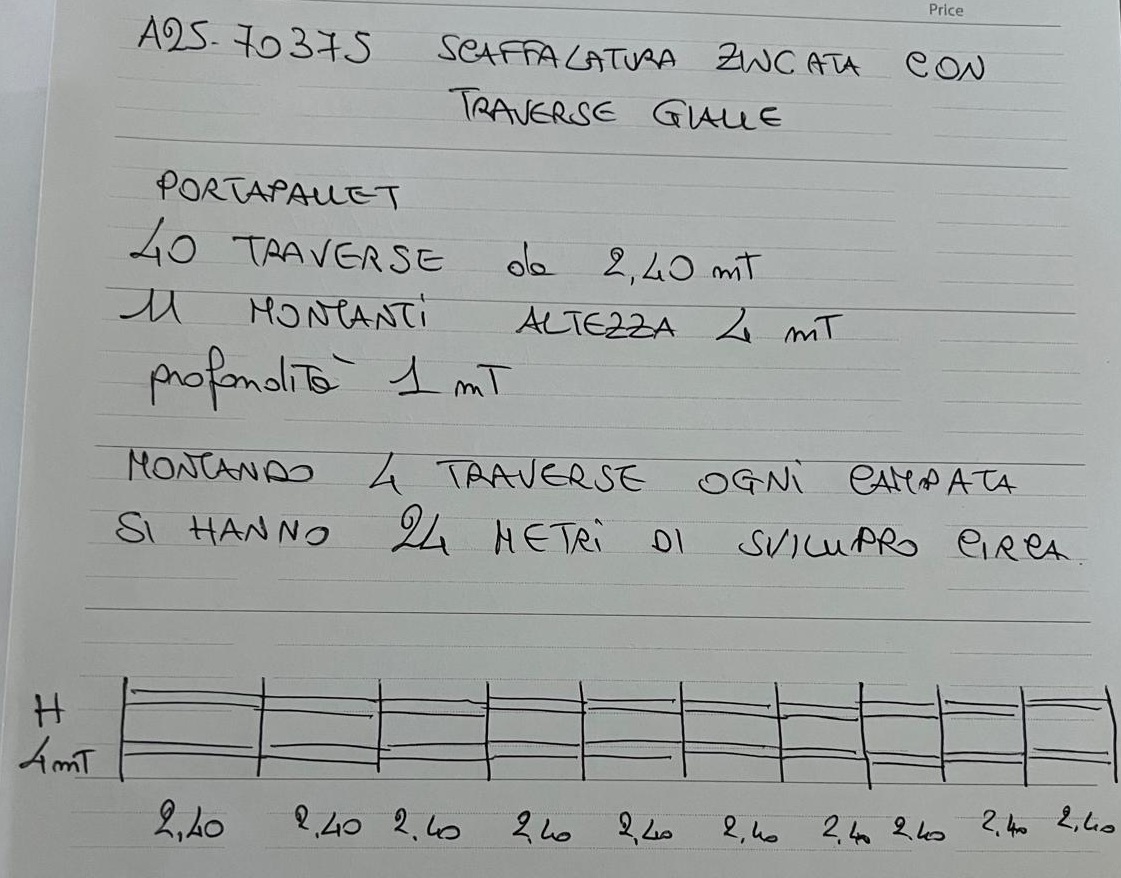 Price
A25-70375 SCAFFALATURA ZINCATA CON
TRAVERSE GIALLE
PORTAPALLET
40 TRAVERSE da 2,40 mT
11 MONTANTI ALTEZZA 4 mT
profondità 1 mT
MONTANDO 4 TRAVERSE OGNI CAMPATA
SI HANNO 24 METRI DI SVILUPPO CIRCA.
H
4 mT
2,40 2,40 2.40 2,40 2,40 2,40 2,40 2.40 2,40 2,40